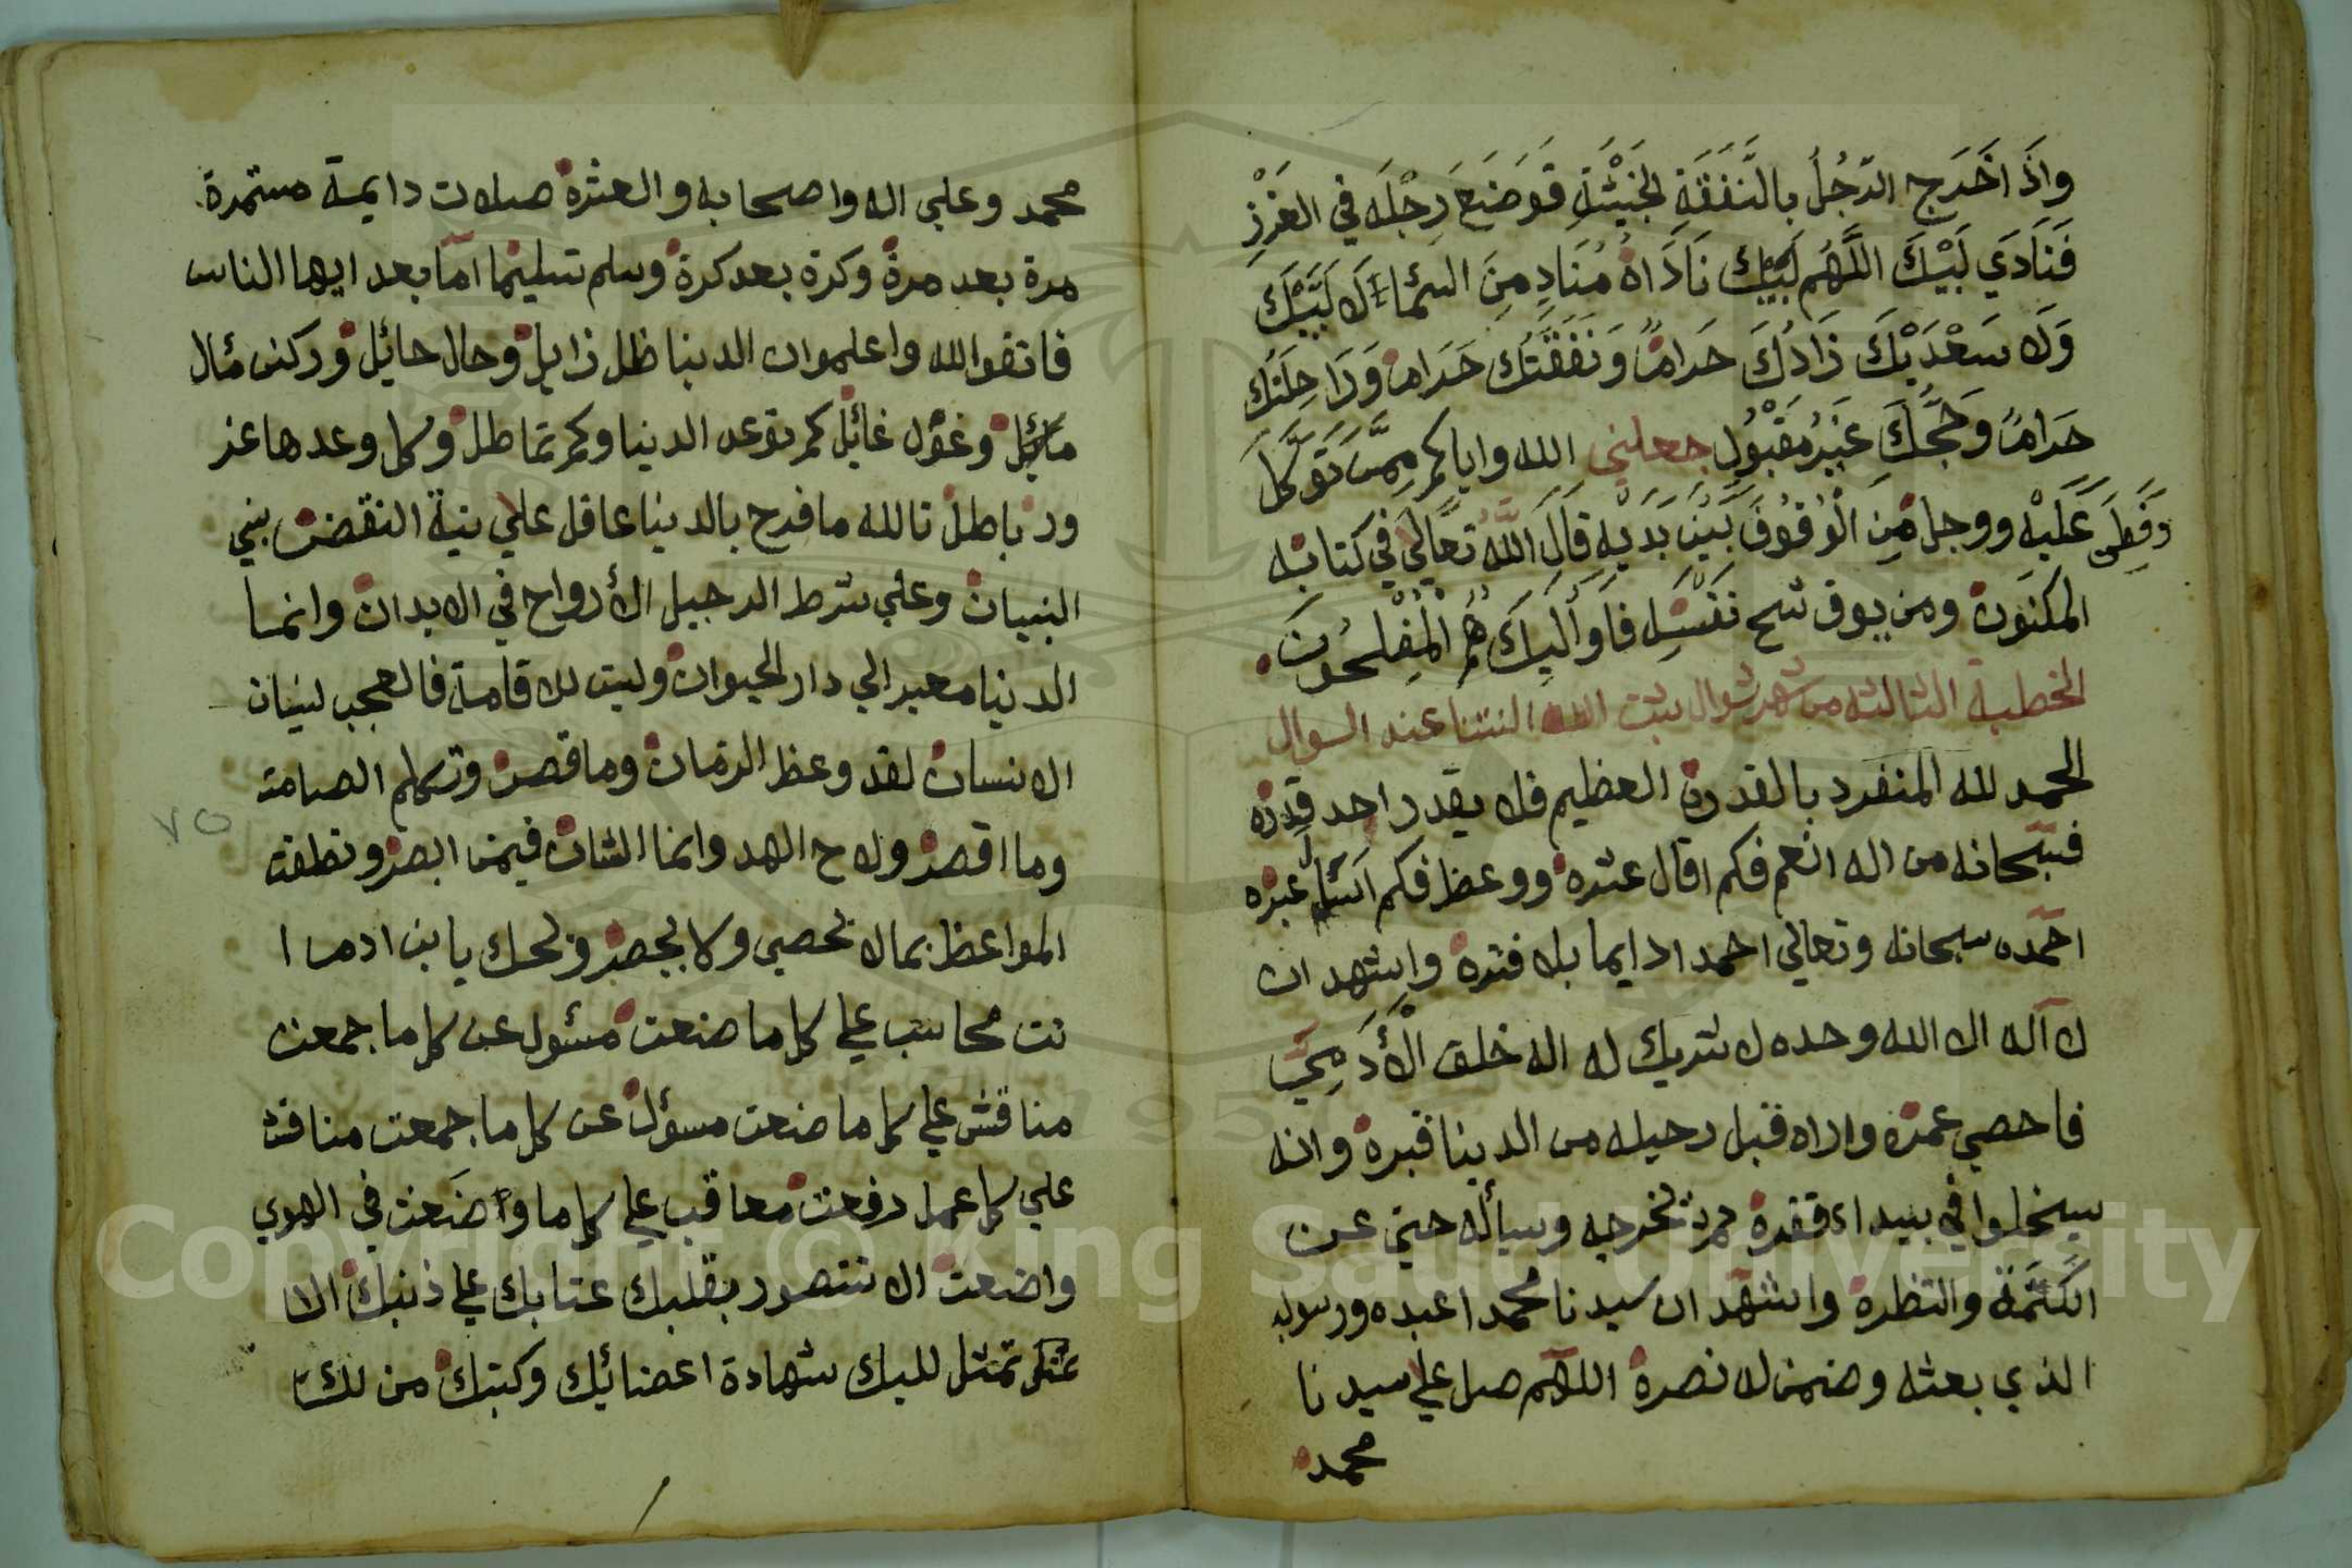 واذَا اخَرَج الرّجُلُ بالنَّفَقَةِ الخبَيْثَةِ فوَضَعَ رِجْلَه في الغَرْزِ
فَنَادَي لَبَيْكَ اللَّهُم لَبَيْك نَادَاهُ مُنَادٍ مِنَ السمَاء لَا لَبَيْكَ
وَلَا سَعْدَيْكَ زَادُكَ حَرامٌ وَنَفَقَتُكَ حَرَامٌ وَرَاحِلَتُكَ
حَرَامٌ وَحَجُّكَ غَيْرُ مَقْبُولٍ جعلني الله واياكم مِمَّن تَوَكَّلَ
عَلَيْهِ ووجل مِنَ الْوُقُوف بَيْن يَدَيْهِ قَالَ اللَّهُ تَعَالَي في كتابه
المكنون ومن يوق شح نَفْسِه فَاوَلَيِكَ هُمُ الْمُفْلِحُونَ
الخطبة الثالثه من شهر شوال ثبت الله السنتنا عند السوال
الحمد لله المنفرد بالقدرة العظيم فلا يقدر احد قدره
فسبحانه من اله انعم فكم اقال عثره ووعظ فكم اسال عبره
احمده سبحانه وتعالي احمدا دايما بلا فتره واشهد ان
لا اله الا الله وحده لا شريك له اله خلق الْأَدَمِيّ
فاحصي عمره واراه قبل رحيله من الدينا قبره وانه
سيخلوا في بيداء قفره ثم تخرجه وسيأله حتي عن
الكتمة والنظرة واشهد ان سيدنا محمدا عبده ورسوله
الذي بعثه وضمن له نصره اللهم صل علي سيدنا
محمد
محمد وعلي اله واصحابه والعشره صلات دايمة مستمرة
مرة بعد مرة وكرة بعد كرة وسلم تسليما اما بعد ايها الناس
فاتقوا الله واعلموا ان الدينا ظل زايل وحال حائل وركن مائل
وغول غائل كم توعد الدينا وكم تماطل وكل وعدها غر
ور باطل تالله ما فرح بالدينا عاقل علي بنية النقض بني
البنيان وعلي شرط الرحيل الأرواح في الابدان وانما
الدينا معبر الي دار الحيوان وليت للاقامة فالعجب لنسيان
الانسان لقد وعظ الزمان وما قصر وتكلم الصامت
وما اقصر ولاح الهد وانما الشان فيمن ابصر ونطقت
المواعظ بما لا تحصي ولا يحصر ويحك يا بن ادم ا
نت محاسب علي كل ما صنعت مسئول عن كل ما جمعت
مناقش علي كل ما صنعت مسؤل عن كل ما جمعت مناقش
علي كل عمل رفعت معاقب علي كل ما واضَعت في الهوي
واضعت الا تتصور بقلبك عتابك علي ذنبك الا
تمثل للبك شهادة اعضائك وكتبك من لك
٧٥
Copyright © King Saud University
1957